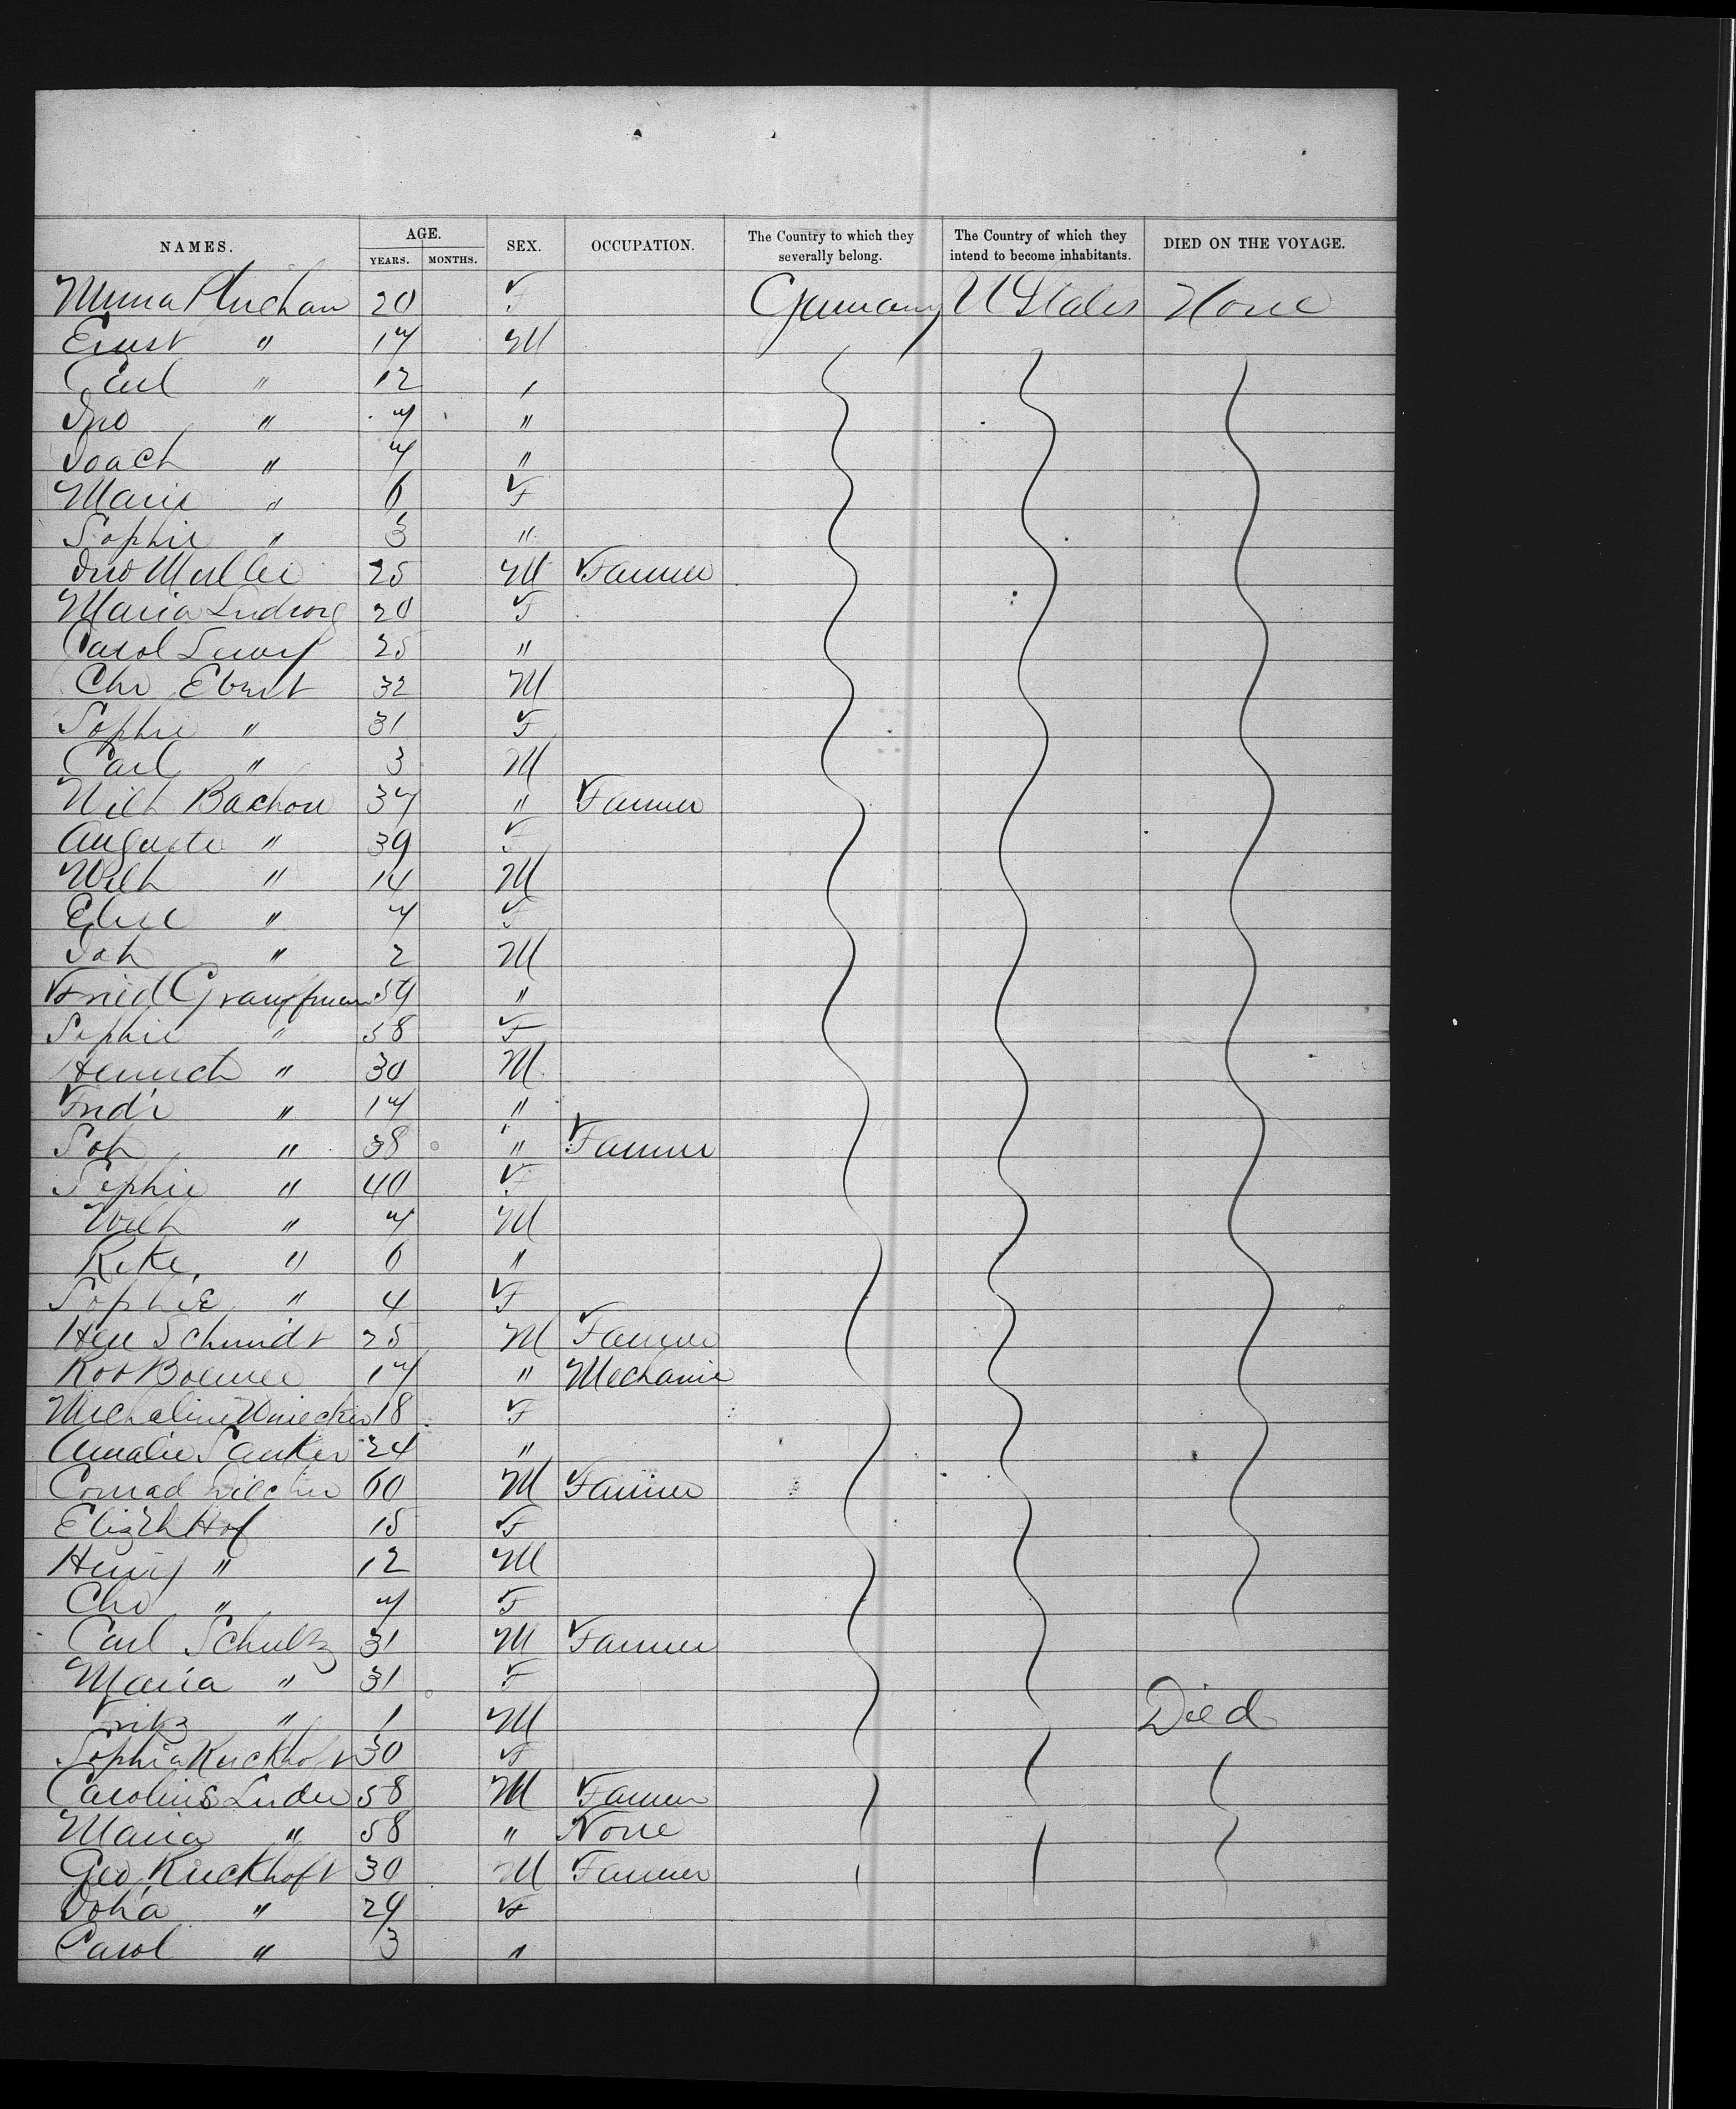 NAMES. AGE. SEX. OCCUPATION. The Country to which they severally belong. The Country of which they intend to become inhabitants. DIED ON THE VOYAGE.
YEARS. MONTHS.
Minna 20 F Germany U States None
Ernst " 17 M
Carl " 12 "
Jno " 7 "
Joach " 7 "
Marie " 6 F
Sophie " 3 "
Jno Muller 25 M Farmer
Maria Ludwig 20 F
Carol 25 "
Chr Ebert 32 M
Sophie " 31 F
Carl " 3 M
Wilh Bachon 37 " Farmer
Auguste " 39 F
Wilh " 14 M
Elise " 7 F
Joh " 2 M
Fried 59 "
Sophie " 58 F
Heinrich " 30 M
Fried'r " 17 "
Joh " 38 " Farmer
Sophie " 40 F
Wilh " 7 M
Rike " 6 "
Sophie " 4 F
Hen Schmidt 25 M Farmer
Rob 17 " Mechanic
Micheline 18 F
Amalie 24 "
Conrad 60 M Farmer
Elizth Hof 15 F
Henry " 12 M
Chr " 7 F
Carl Schultz 31 M Farmer
Maria " 31 F
Fritz " 1 M Died
Sophia Kuckhoft 30 F
Carolins Luder 58 M Farmer
Maria " 58 " None
Geo Kuckhoft 30 M Farmer
Joh'a " 29 F
Carol " 3 "